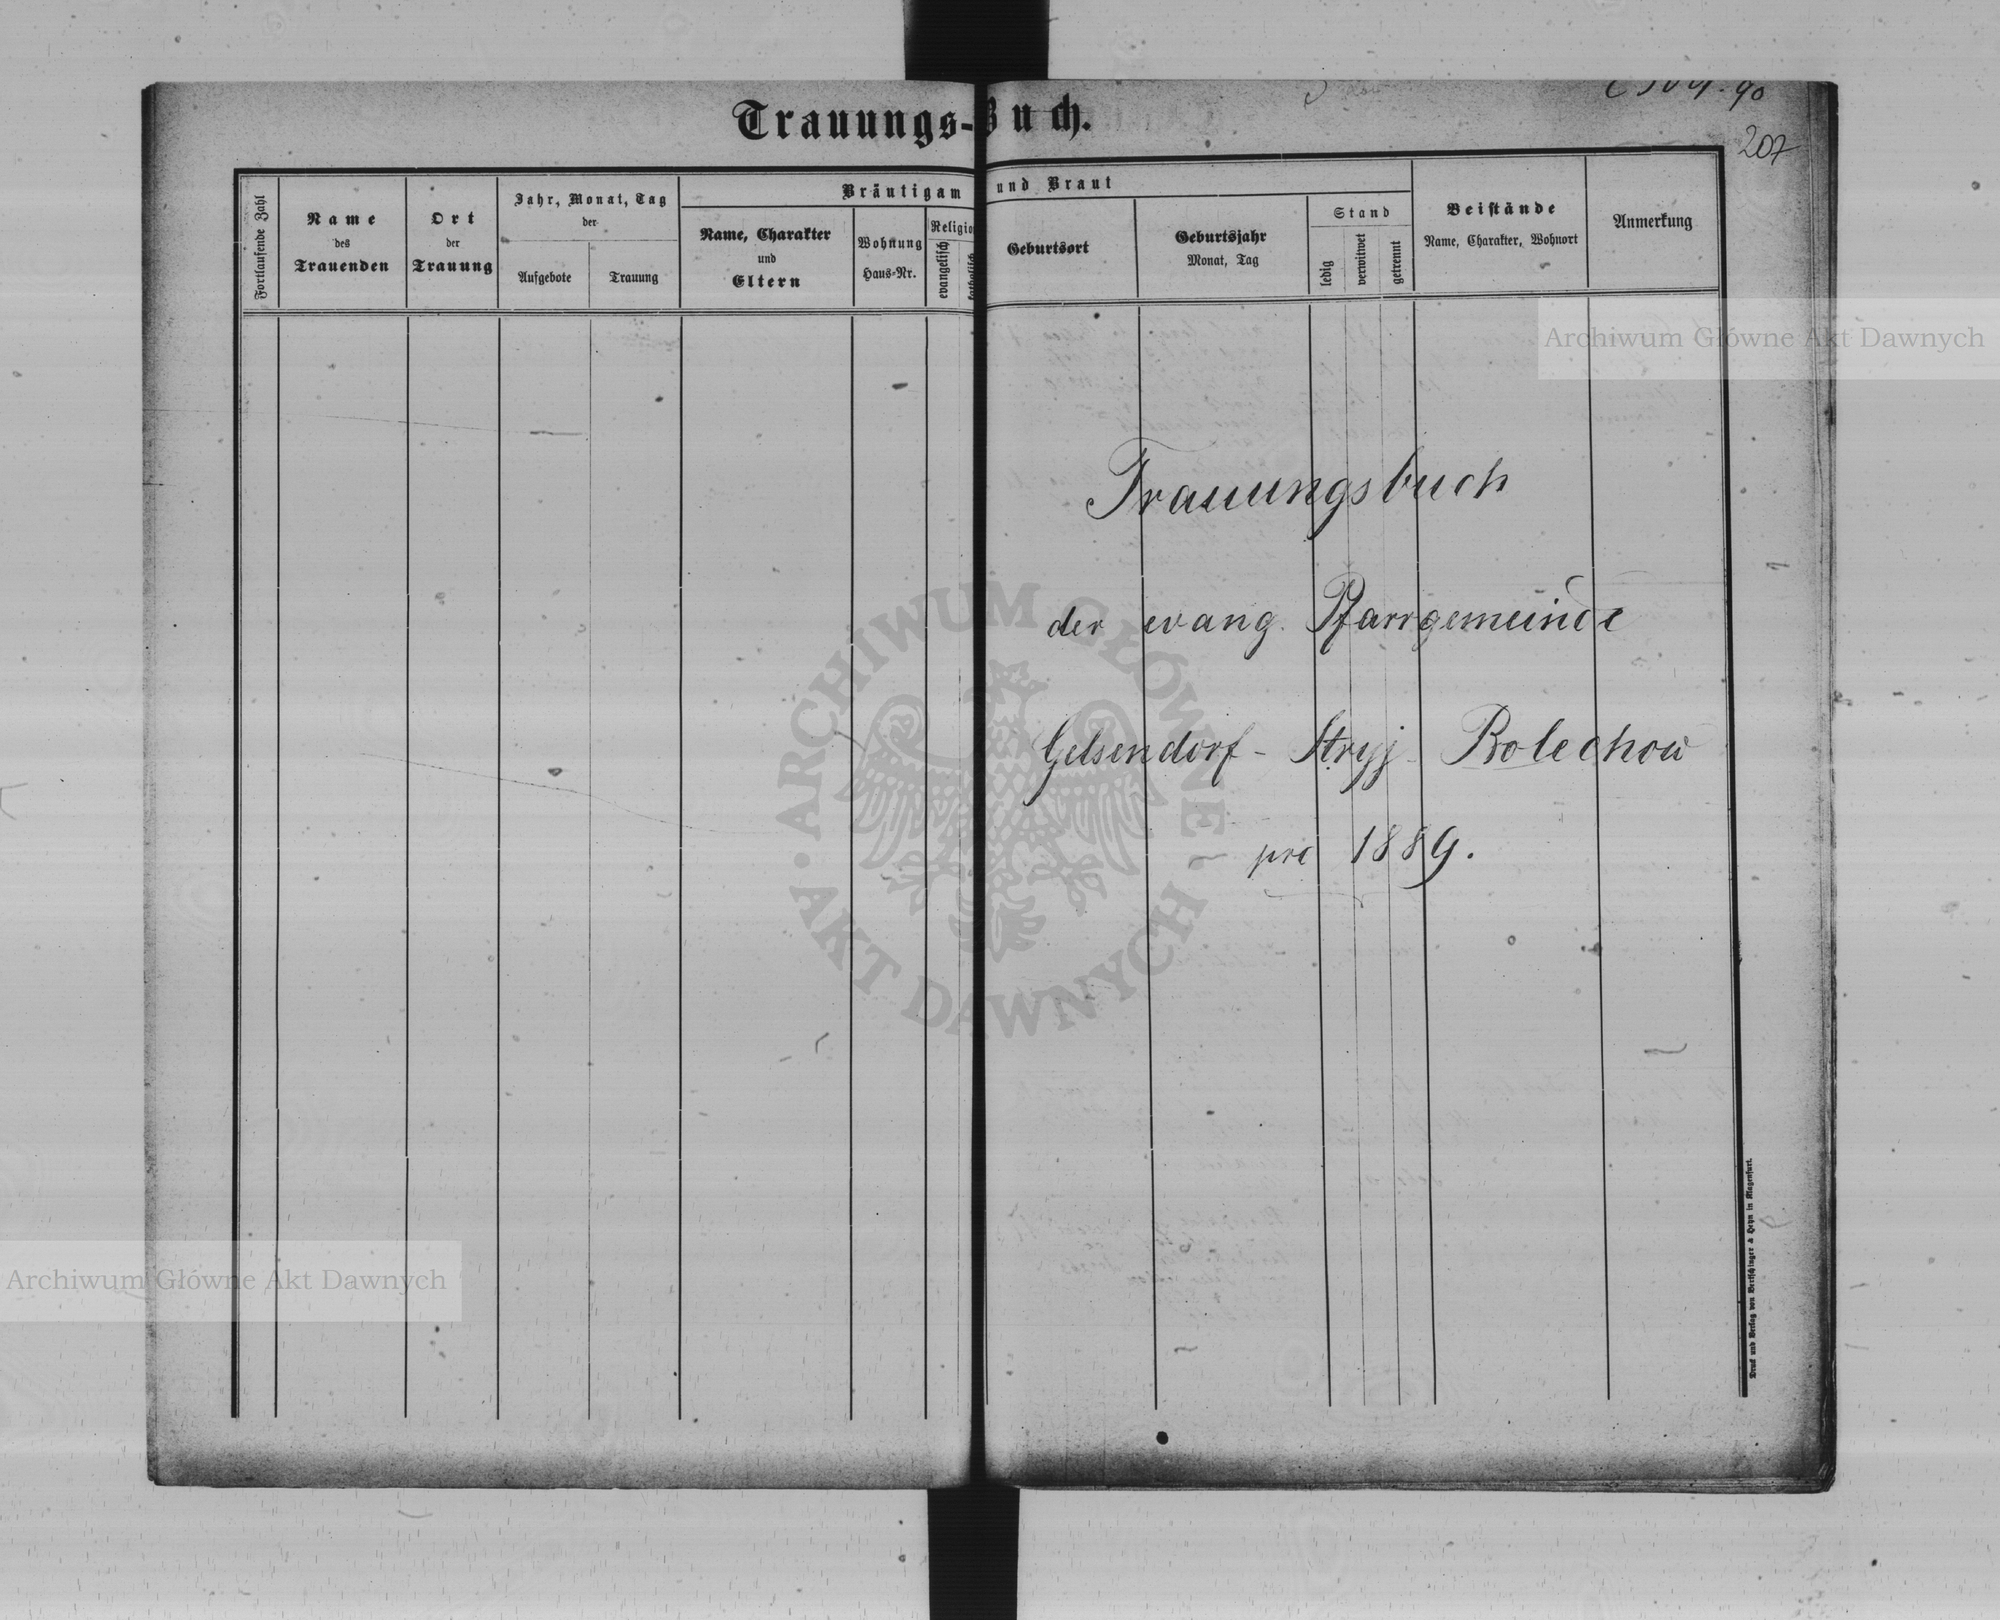 Trauungs-Buch.
207
Fortlaufende Zahl
Name
des
Trauenden
Ort
der
Trauung
Jahr, Monat, Tag
der
Aufgebote
Trauung
Bräutigam und Braut
Name, Charakter
und
Eltern
Wohnung
Haus-Nr.
Religio
evangelisch
katholisch
Geburtsort
Geburtsjahr
Monat, Tag
Stand
ledig
verwitwet
getrennt
Beistände
Name, Charakter, Wohnort
Anmerkung
Trauungsbuch
der evang. Pfarrgemeinde
Gelsendorf - Stryj - Bolechow
pro 1889.
Druck und Verlag von Bertschinger & Heyn in Klagenfurt.
Archiwum Główne Akt Dawnych
Archiwum Główne Akt Dawnych
ARCHIWUM GŁÓWNE · AKT DAWNYCH ·